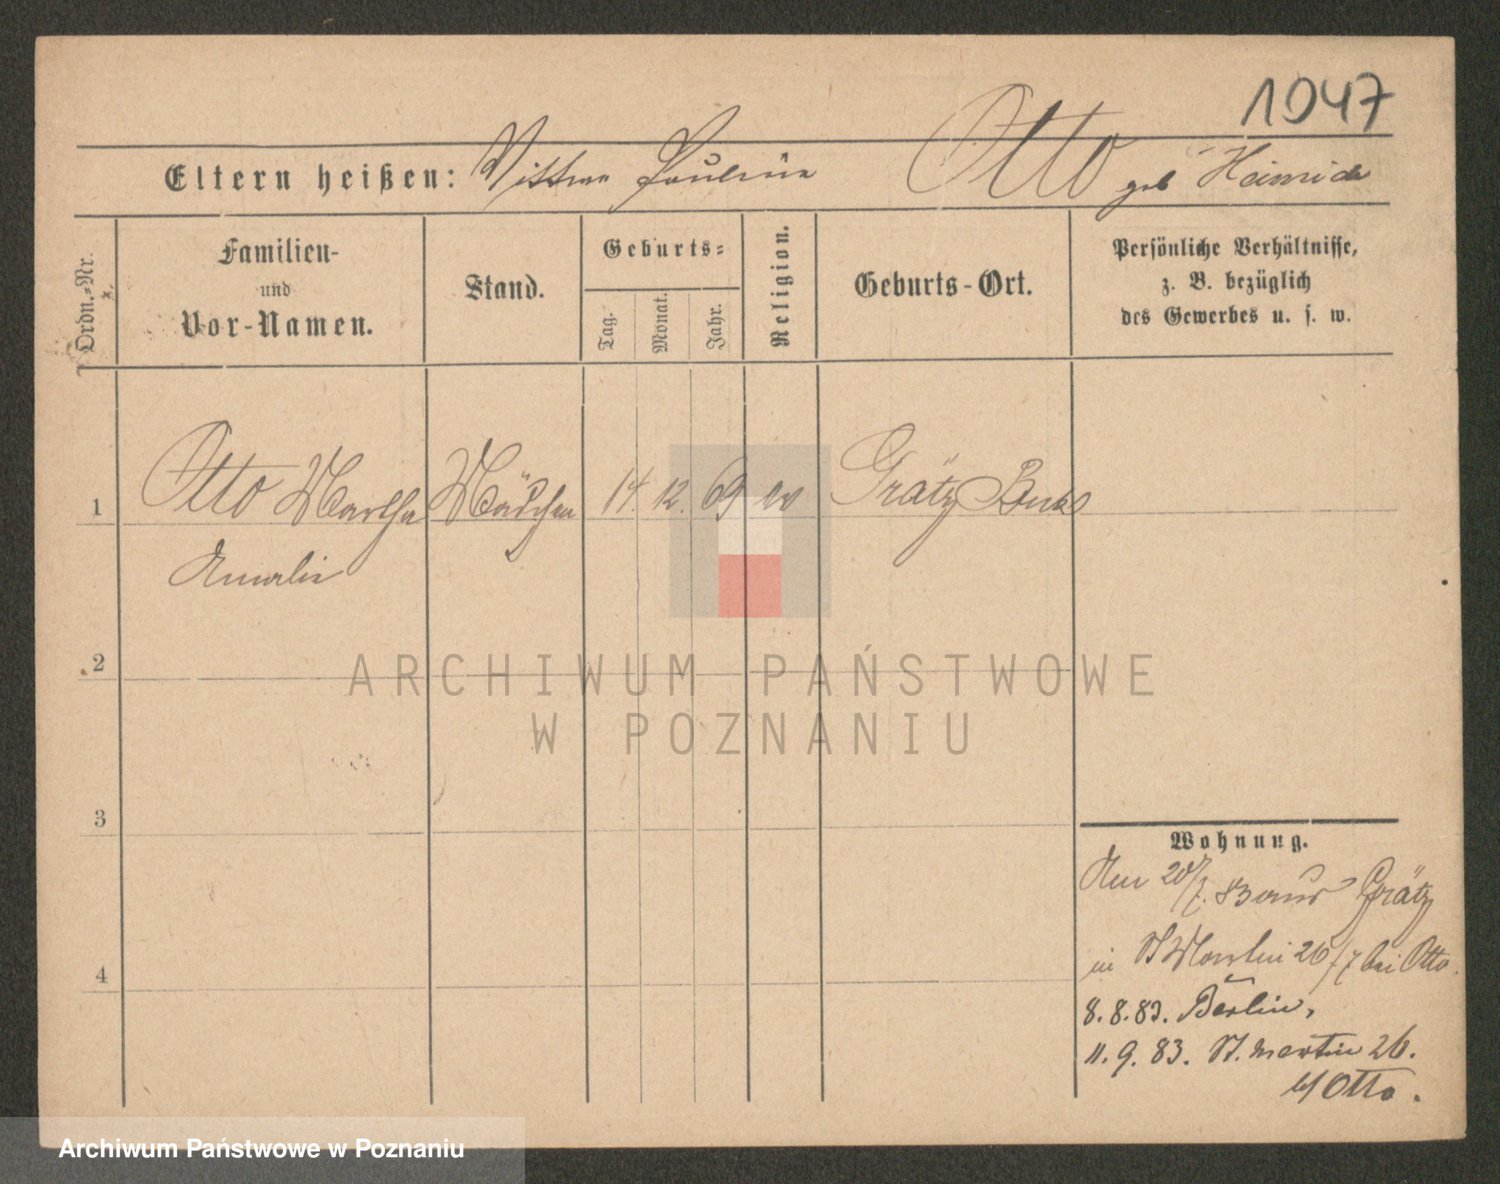 1047
Eltern heißen: Wittwe Pauline Otto geb Heinrich
Ordn.-Nr.
Familien-
und
Vor-Namen.
Stand.
Geburts-
Tag.
Monat.
Jahr.
Religion.
Geburts-Ort.
Persönliche Verhältnisse,
z. B. bezüglich
des Gewerbes u. s. w.
1 Otto Martha Mädchen 14. 12. 69 ev Grätz Buk
Amalie
2
3
4
Wohnung.
Am 20/7. 83 aus Grätz
in St Martin 26/7 bei Otto.
8. 8. 83. Berlin,
11. 9. 83. St. Martin 26.
b/ Otto.
ARCHIWUM PAŃSTWOWE
W POZNANIU
Archiwum Państwowe w Poznaniu